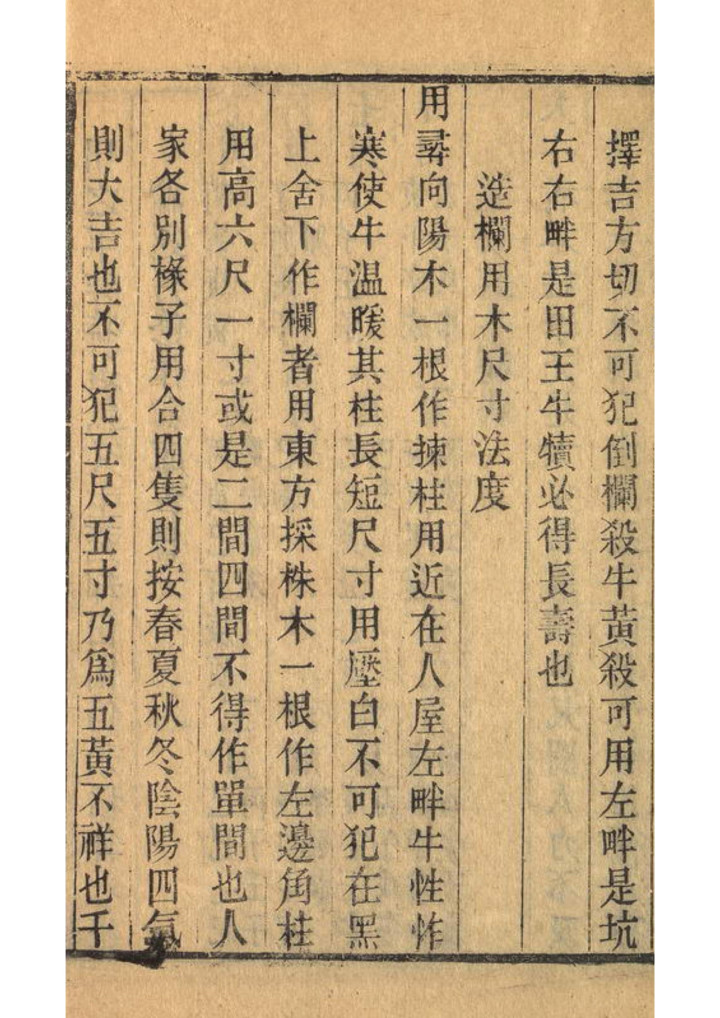 擇吉方切不可犯倒欄殺牛黃殺可用左畔是坑
右右畔是田王牛犢必得長壽也
造欄用木尺寸法度
用尋向陽木一根作揀柱用近在人屋左畔牛性怍
寒使牛温暖其柱長短尺寸用壓白不可犯在黑
上舍下作欄者用東方採株木一根作左邊角柱
用高六尺一寸或是二間四間不得作單間也人
家各別椽子用合四隻則按春夏秋冬陰陽四氣
則大吉也不可犯五尺五寸乃爲五黃不祥也千